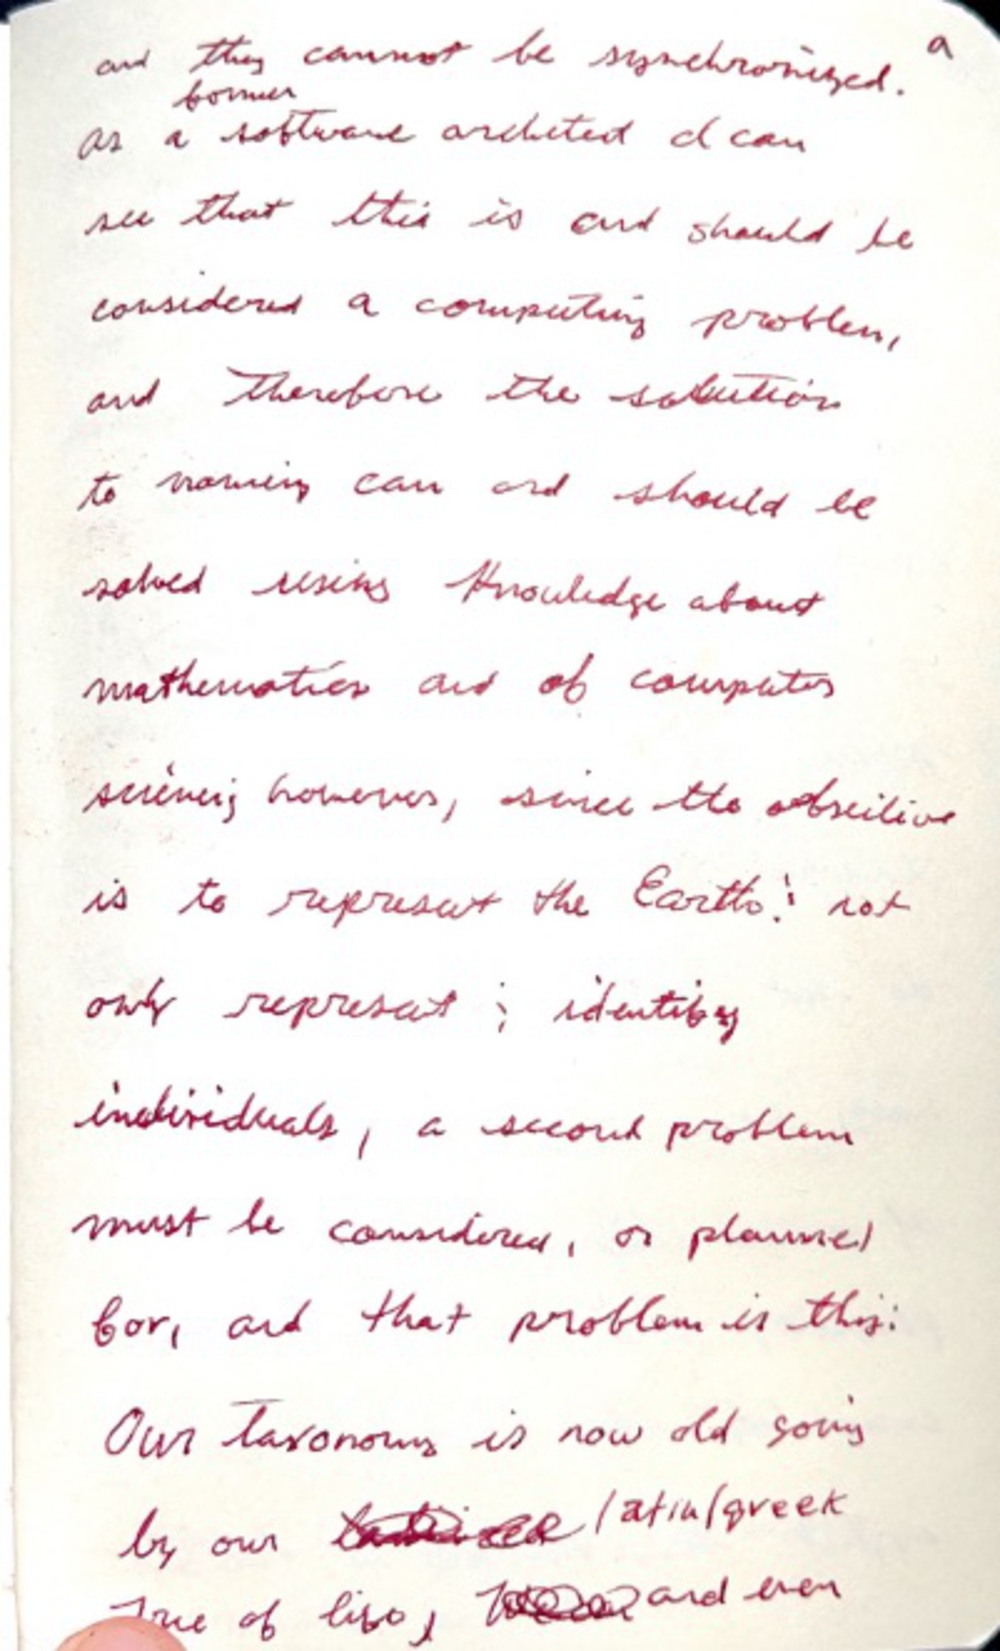 a
and they cannot be synchronized.
former
as a software architect I can
see that this is and should be
considered a computing problem,
and therefore the solution
to naming can and should be
solved using knowledge about
mathematics and of computer
science; however, since the objective
is to represent the Earth! not
only represent; identify
individuals, a second problem
must be considered, or planned
for, and that problem is this:
Our taxonomy is now old going
by our latin/greek
of life, and even